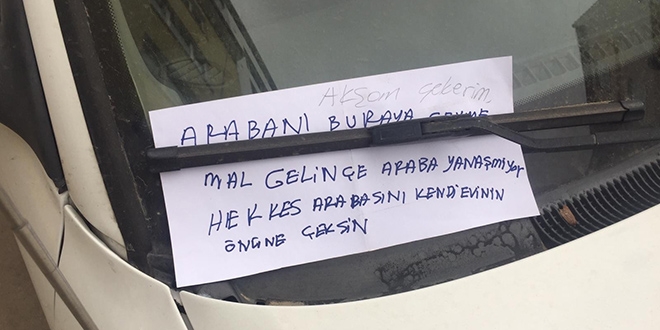 Akşam çekerim
ARABANI BURAYA ÇEKME
MAL GELİNÇE ARABA YANAŞMIYor
HEKKES ARABASINI KENDİEVİNİN
ÖNÜNE ÇEKSİN